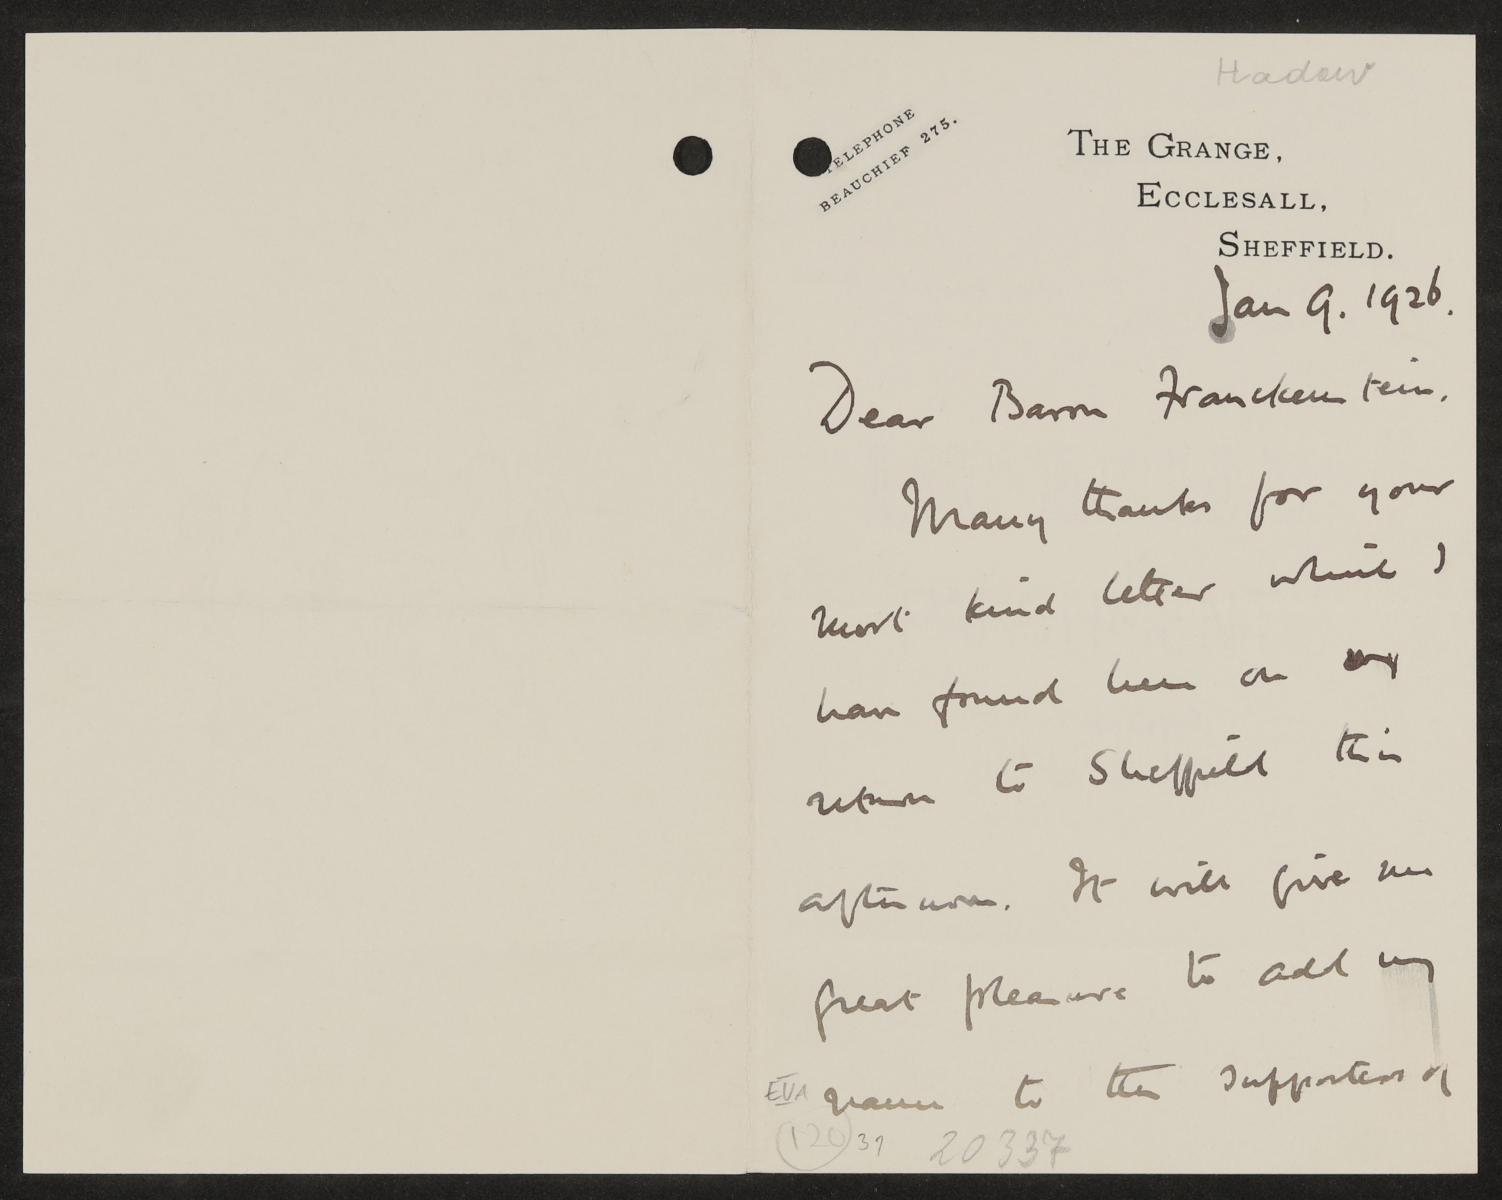 Hadow
TELEPHONE
BEAUCHIEF 275.
THE GRANGE,
ECCLESALL,
SHEFFIELD.
Jan 9. 1926.
Dear Baron Franckenstein.
Many thanks for your
most kind letter which I
have found here on my
return to Sheffield this
afternoon. It will give me
great pleasure to add my
name to the supporters of
EVA
120 37 20337